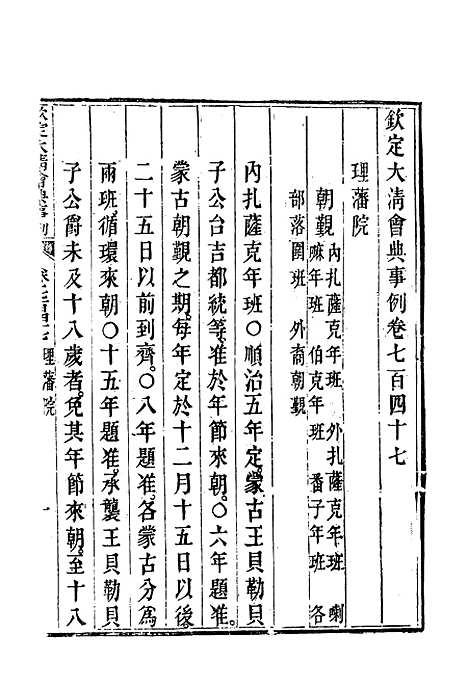 欽定大淸會典事例卷七百四十七
理藩院
朝覲 內扎薩克年班 外扎薩克年班 喇
嘛年班 伯克年班 番子年班 各
部落圍班 外裔朝覲
內扎薩克年班〇順治五年定蒙古王貝勒貝
子公台吉都統等准於年節來朝〇六年題准
蒙古朝覲之期每年定於十二月十五日以後
二十五日以前到齊〇八年題准各蒙古分為
兩班循環來朝〇十五年題准承襲王貝勒貝
子公爵未及十八歲者免其年節來朝至十八
欽定大淸會典事例 卷七百四十七 理藩院 一